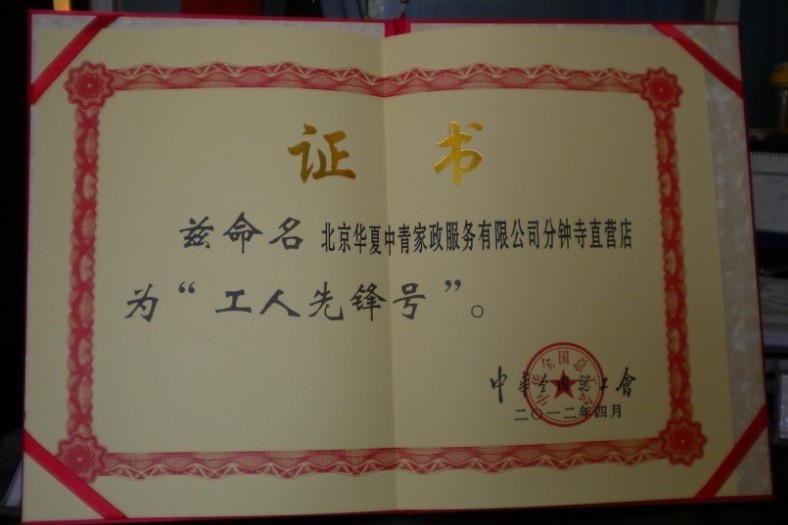 证书
兹命名 北京华夏中青家政服务有限公司分钟寺直营店
为“工人先锋号”。
中华全国总工會
二〇一二年四月